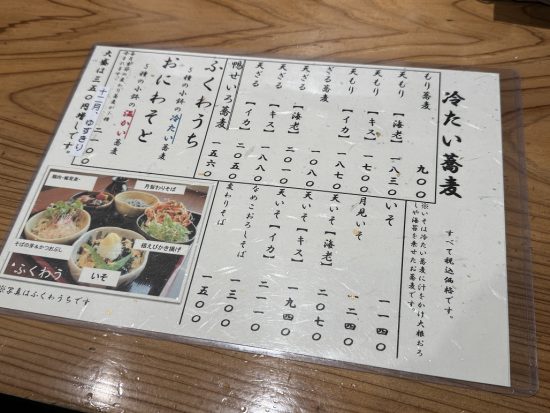 冷たい蕎麦
すべて税込価格です。
※いそは冷たい蕎麦に汁をかけ大根おろ
しや海苔を乗せたお蕎麦です。
もり蕎麦 九〇〇
天もり【海老】一八三〇
天もり【キス】
天もり【イカ】一七〇〇
ざる蕎麦 一〇八〇
天ざる【海老】二〇一〇
天ざる【キス】
天ざる【イカ】一八八〇
鴨せいろ蕎麦 二五五〇
いそ 一一四〇
月見いそ 二四〇
天いそ【海老】二〇七〇
天いそ【キス】一九四〇
天いそ【イカ】
なめこおろしそば
変わりそば 一三〇〇
一五〇〇
ふくわうち 一五六〇
5種の小鉢の冷たい蕎麦
おにわそと
5種の小鉢の温かい蕎麦
十二月、ゆずきり
大盛は三五〇円増しです。
鶏肉・麺見素・
月替わりそば
そばの芽&かつおぶし
桜えびかき揚げ
いそ
ふくわう
※写真はふくわうちです